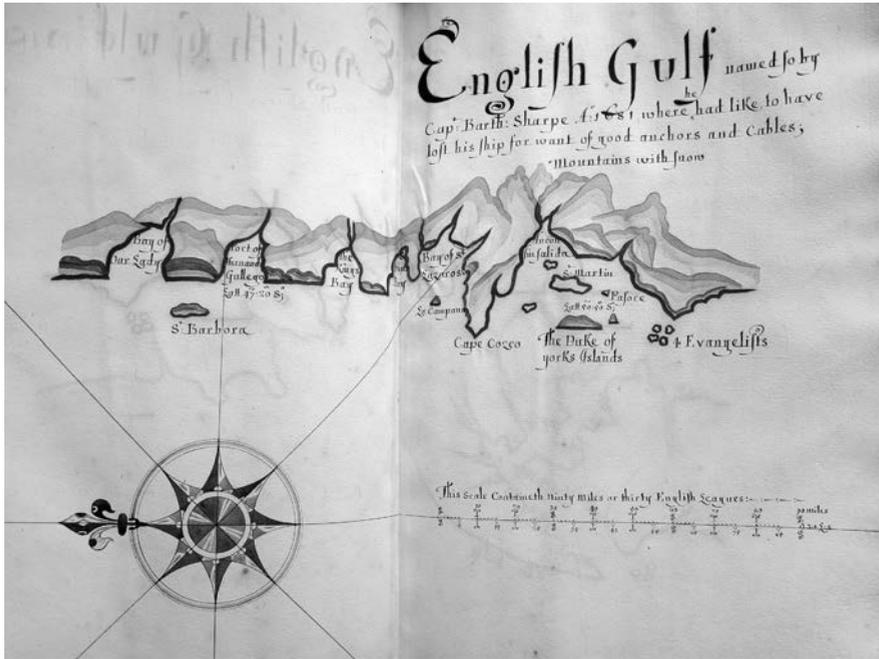 English Gulf named so by
Capt: Barth: Sharpe A: 1681 where he had like, to have
lost his ship for want of good anchors and Cables;
Mountains with snow
Bay of
Our Lady
Port of
Gallego
Latt 47:20 S;
the
Kings
Bay
Bay of St
Lazaross
La Campana
Cape Cozco
St Barbora
Ancon
sin salida
St Martin
The Duke of
yorks Islands
4 Evangelists
This Scale Containeth Ninty miles or thirty English Leagues:
miles